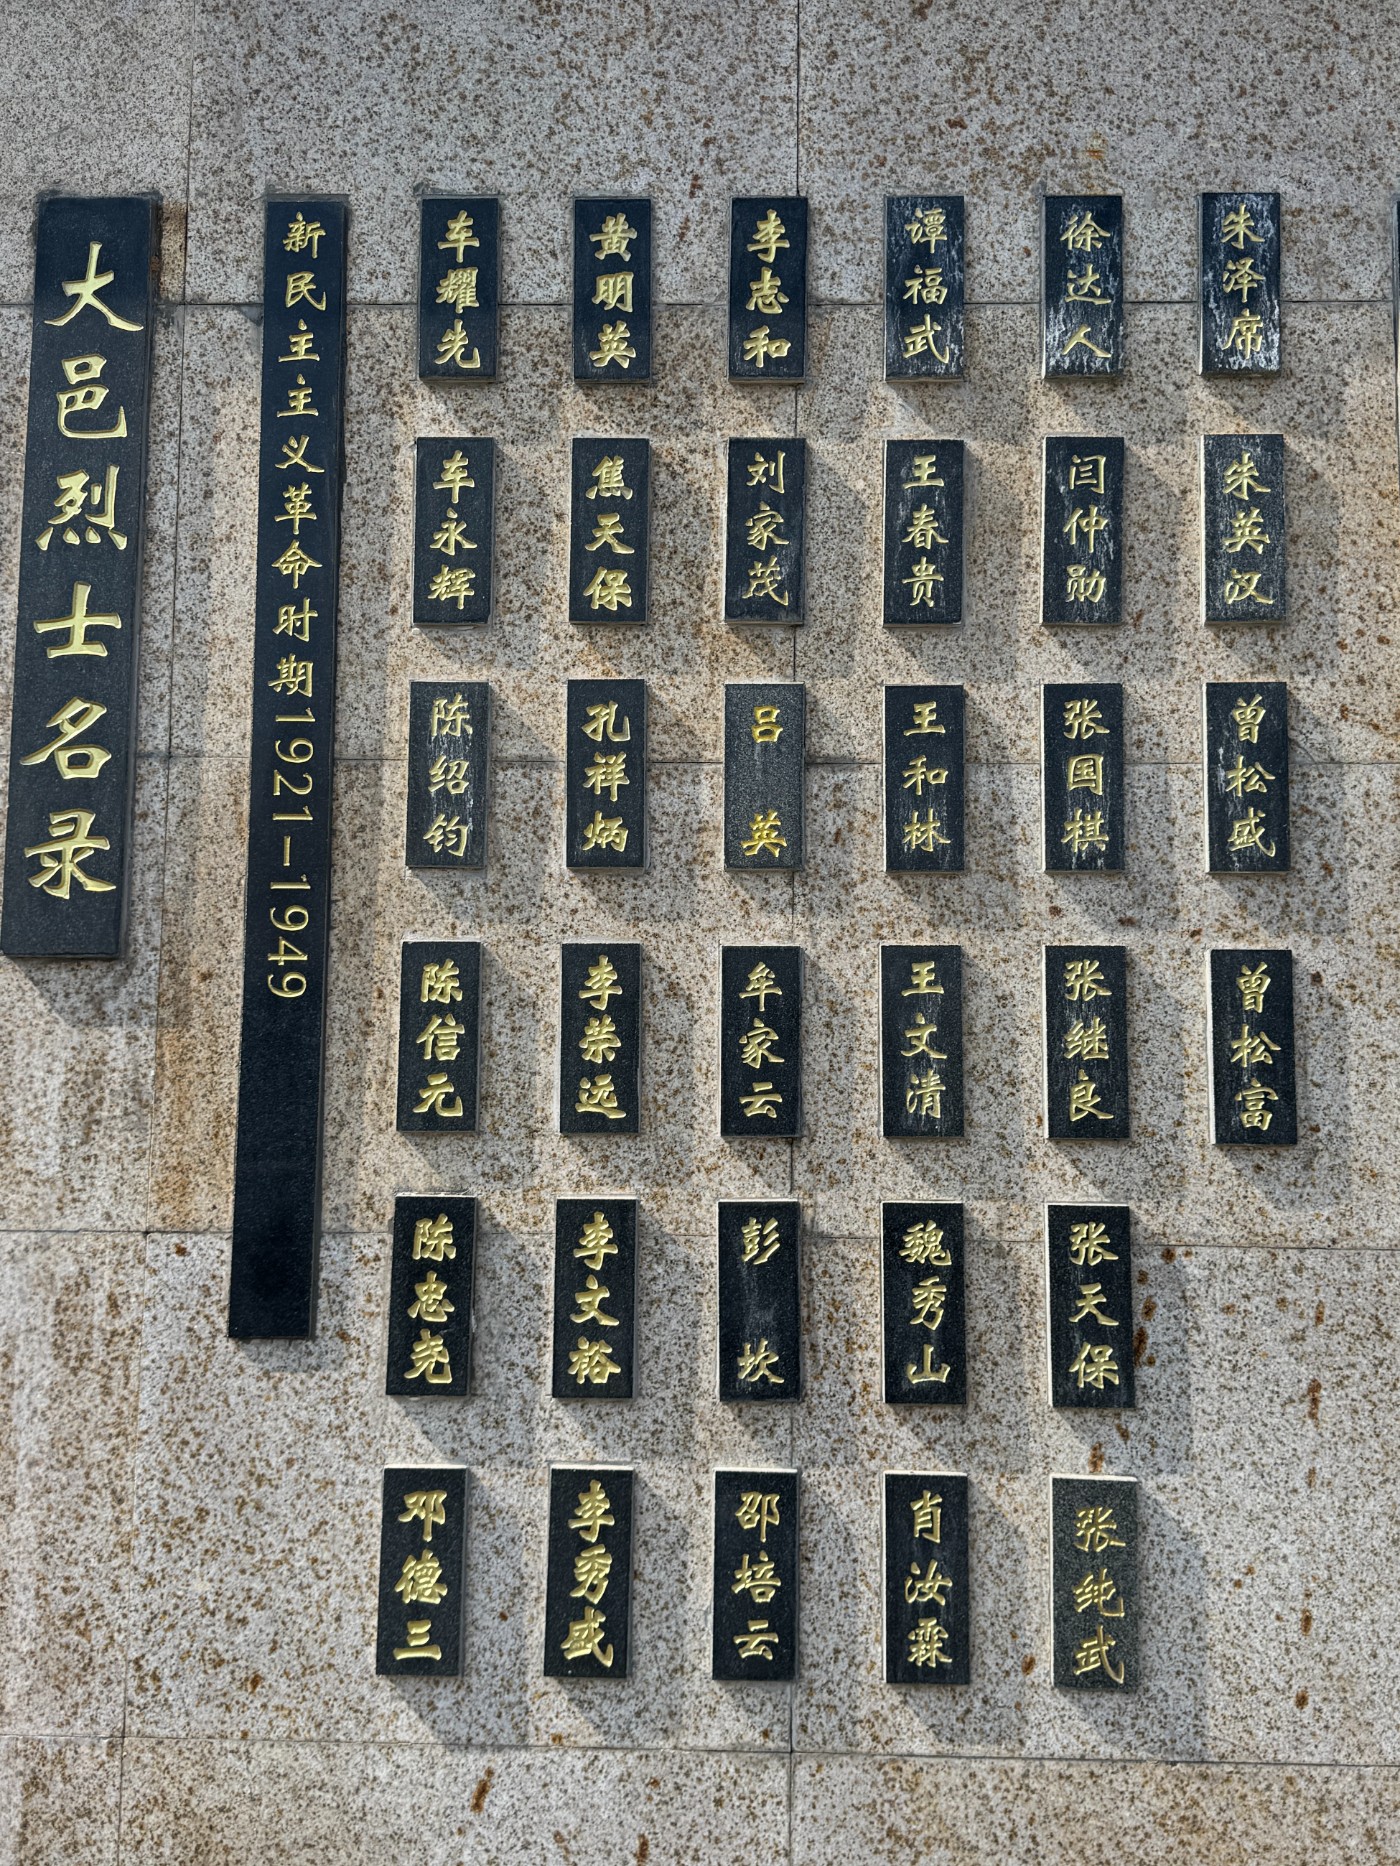 大邑烈士名录
新民主主义革命时期1921—1949
车耀先
车永辉
陈绍钧
陈信元
陈忠尧
邓德三
黄明英
焦天保
孔祥炳
李荣远
李文裕
李秀盛
李志和
刘家茂
吕英
牟家云
彭坎
邵培云
谭福武
王春贵
王和林
王文清
魏秀山
肖汝霖
徐达人
闫仲勋
张国棋
张继良
张天保
张纯武
朱泽席
朱英汉
曾松盛
曾松富